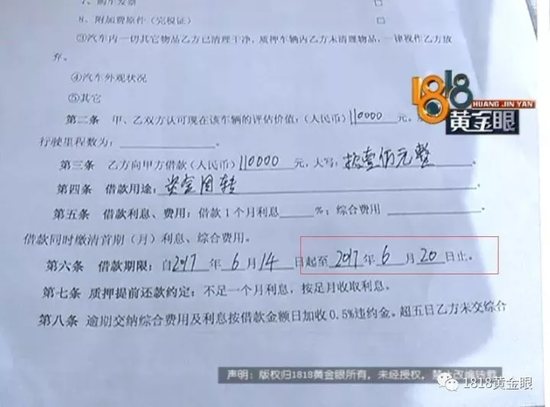 7、购车发票 □
8、附加费原件（完税证） □
③汽车内一切其它物品乙方已清理干净，质押车辆内乙方未清理物品，一律视作乙方放
弃。
④汽车外观状况
⑤其它
1818
HUANG JIN YAN
黄金眼
第二条 甲、乙双方认可现在该车辆的评估价值：(人民币) 110000 元。
行驶里程数为：
第三条 乙方向甲方借款(人民币) 110000 元，大写：拾壹佰元整
第四条 借款用途：资金周转
第五条 借款利息、费用：借款1个月利息 %；综合费用
借款同时缴清首期（月）利息、综合费用。
第六条 借款期限：自2017 年 6 月 14 日起至 2017 年 6 月 20 日止。
第七条 质押提前还款约定：不足一个月利息，按足月收取利息。
第八条 逾期交纳综合费用及利息按借款金额日加收0.5%违约金。超五日乙方未交综合
声明：版权归1818黄金眼所有，未经授权，禁止改编转载
1818黄金眼